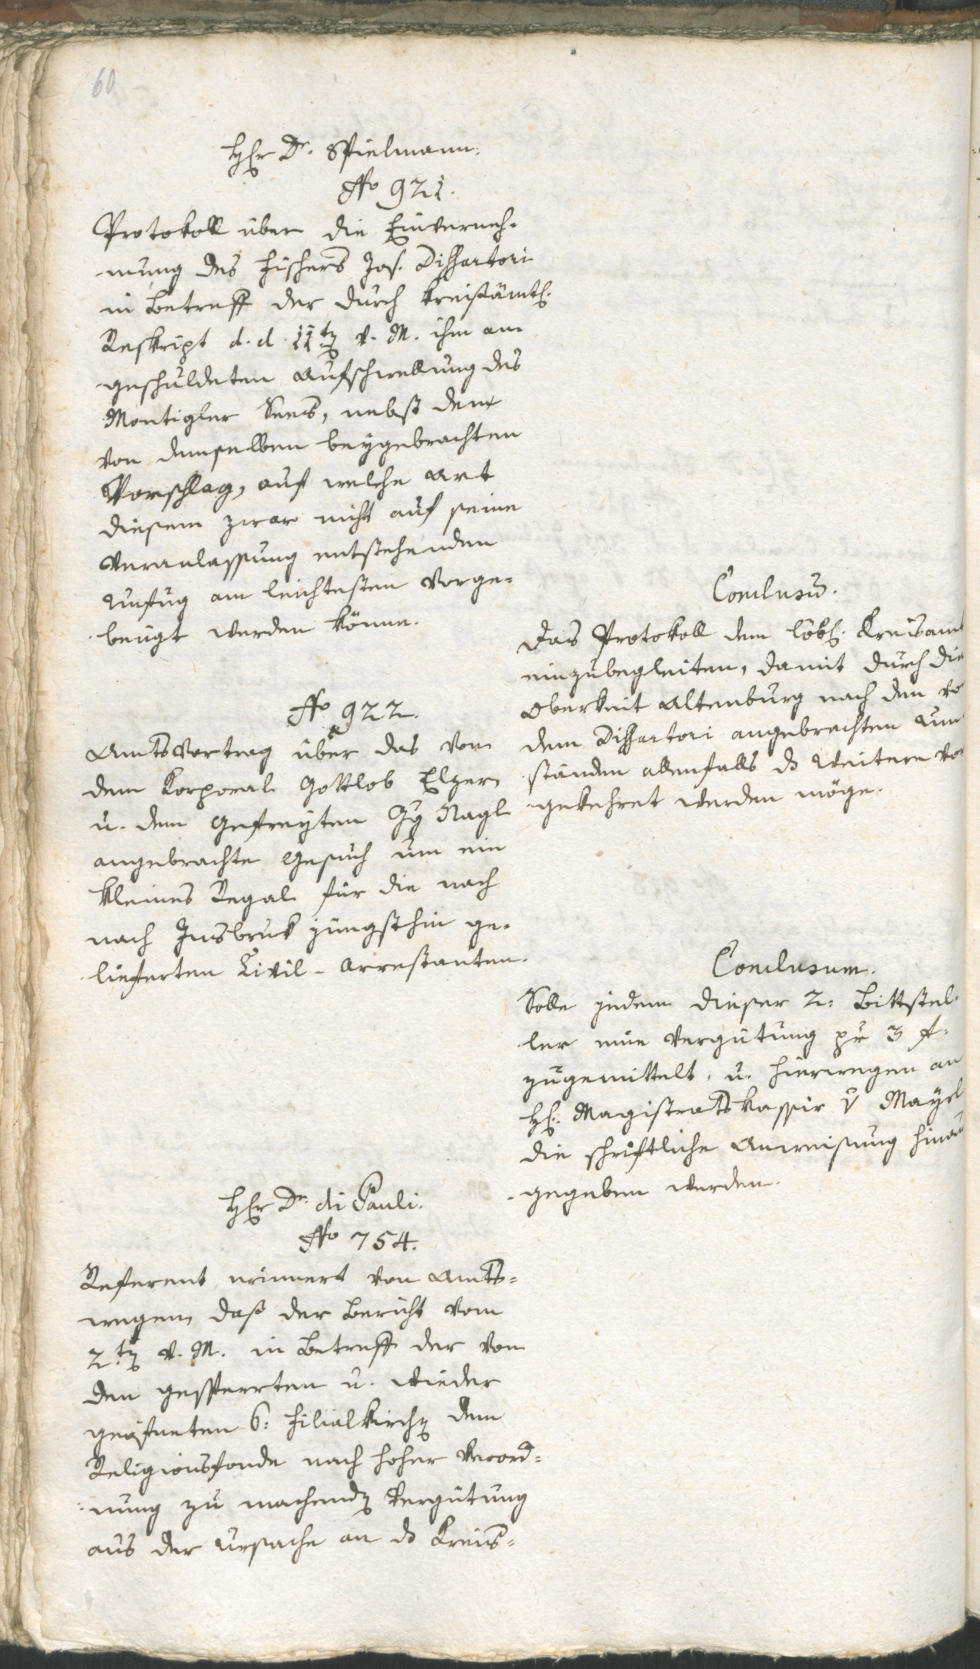 60
HHr Dr. Spielmann.
No 921.
Protokoll über die Einverneh-
mung des Fischers Jos. Dissartori
in Betreff der durch kreisämtl.
Reskript d. d. 11ten v. M. ihm an-
geschuldeten Aufschwellung des
Montigler Sees, nebst dem
von demselben beygebrachten
Vorschlag, auf welche Art
diesem zwar nicht auf seine
Veranlassung entstehenden
Unfug am leichtesten vorge-
beugt werden könne.
Conclusum.
Das Protokoll dem löbl. Kreisamt
einzubegleiten, damit durch die
Oberkeit Altenburg nach den vo
dem Dissartori angebrachten Um-
ständen allenfalls das Weitere vor
gekehret werden möge.
No 922.
Amtsvortrag über das von
dem Korporal Gottlob Elger
u. dem Gefreyten Nagl
angebrachte Gesuch um ein
kleines Regal für die nach
nach Insbruk jüngsthin ge-
lieferten Civil-Arrestanten.
Conclusum.
Solle jedem dieser 2: Bittstel-
ler eine Vergütung pr 3 f.
zugemittelt, u. hierwegen an
Hl. Magistratskassir v Mayrl
die schriftliche Anweisung hinaus
gegeben werden.
HHr Dr. di Pauli.
No 754.
Referent erinnert von Amts-
wegen, daß der Bericht vom
2ten v. M. in Betreff der von
den gesperrten u. wieder
geöfneten 6: Filialkirchen dem
Religionsfonde nach hoher Verord-
nung zu machenden Vergütung
aus der Ursache an das Kreis-